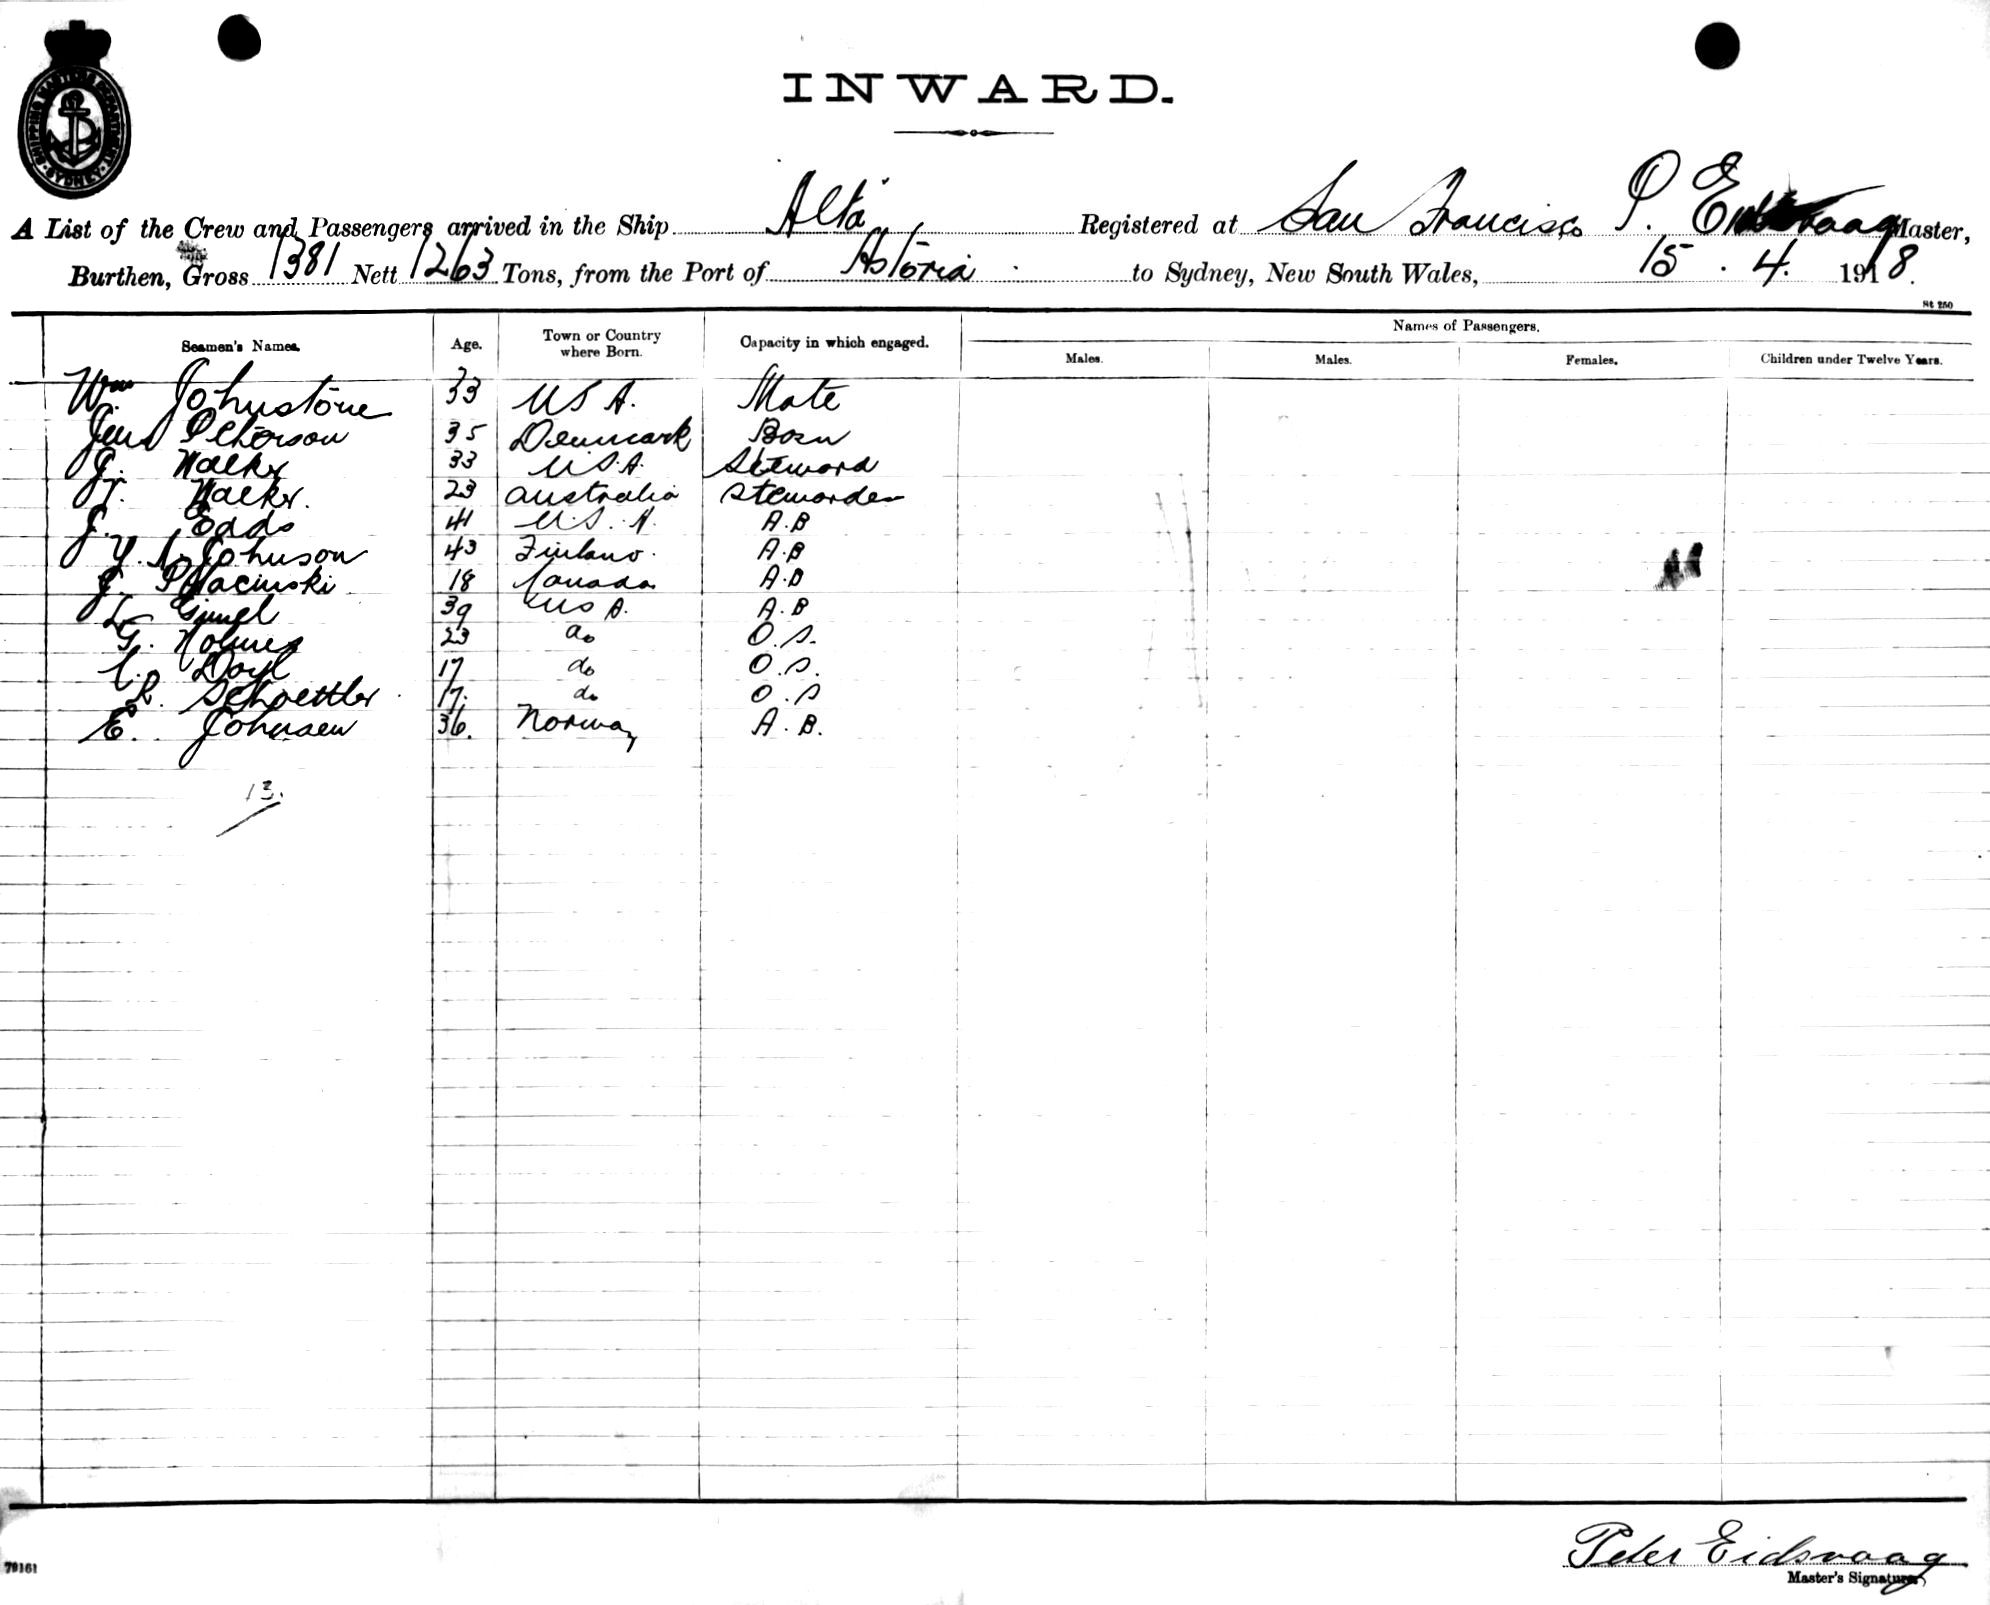 SHIPPING MASTERS DEPARTMENT SYDNEY
INWARD.
A List of the Crew and Passengers arrived in the Ship Alta Registered at San Francisco P. Eidsvaag Master,
Burthen, Gross 1381 Nett 1263 Tons, from the Port of Astoria to Sydney, New South Wales, 15. 4. 1918.
St 250
Seamen's Names. Age. Town or Country where Born. Capacity in which engaged. Names of Passengers.
Males. Males. Females. Children under Twelve Years.
Wm Johnstone 33 USA. Mate
Jens Peterson 35 Denmark Bosn
J. Walker 33 U.S.A. Steward
T. Walker. 23 Australia Stewardess
J. Eads 41 U.S.A. A.B
Y. A. Johnson 43 Finland. A.B
J. 18 Canada A.B
L. Gimel 39 USA. A.B
G. Holmes 23 do O.S.
C. Doyl 17 do O.S.
R. Schoettler 17. do O.S
E. Johnsen 36. Norway A.B.
13.
Peter Eidsvaag
Master's Signature
79161